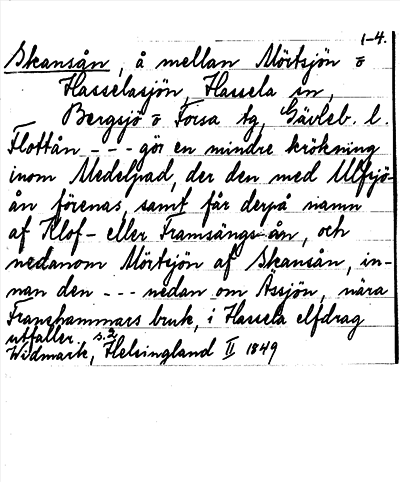 1-4.
Skansån, å mellan Mörtsjön o
Hasselasjön, Hassela sn,
Bergsjö o Forsa tg, Gävleb. l.
Flottån --- gör en mindre krökning
inom Medelpad, der den med Ulfsjö-
ån förenas, samt får derpå namn
af Klof- eller Framsängs-ån, och
nedanom Mörtsjön af Skansån, in-
nan den --- nedan om Assjön, nära
Franshammars bruk, i Hassela elfdrag
utfaller. s. 2
Widmark, Helsingland II 1849